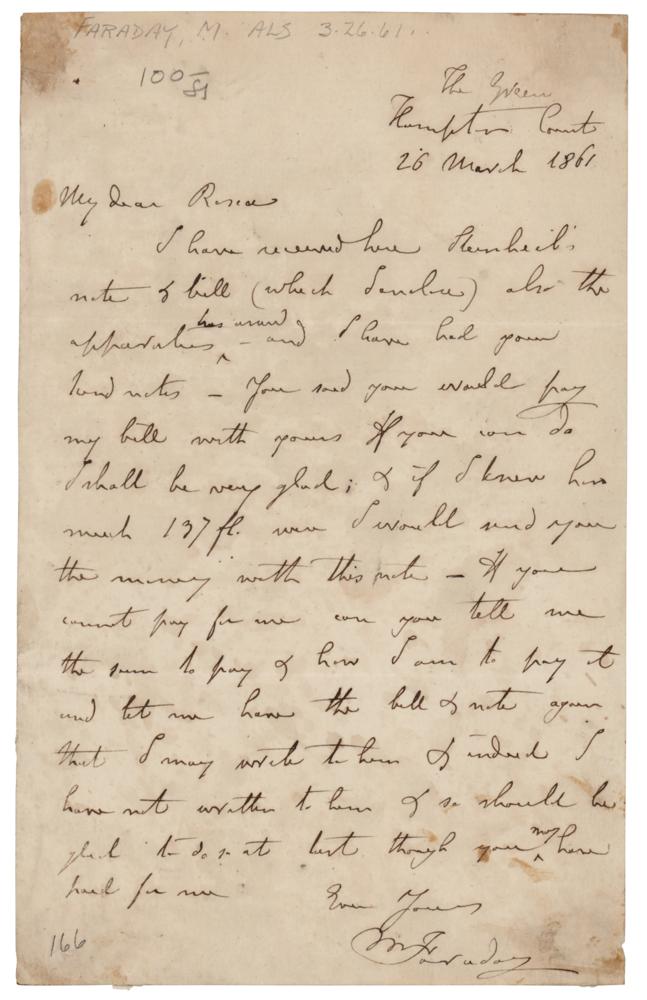 FARADAY, M. ALS 3.26.61.
100-
The Green
Hampton Court
26 March 1861
My dear Roscoe
I have received here Steinheil's
note & bill (which I enclose) also the
has arrived
apparatus - and I have had your
kind notes - You said you would pay
my bill with yours If you can do
I shall be very glad; & if I knew how
much 137 fl. were I would send you
the money with this note - If you
cannot pay for me can you tell me
the sum to pay & how I am to pay it
and let me have the bill & note again
that I may write to him & indeed I
have not written to him & so should be
glad to do so at last though you may have
paid for me
Ever Yours
M Faraday
166